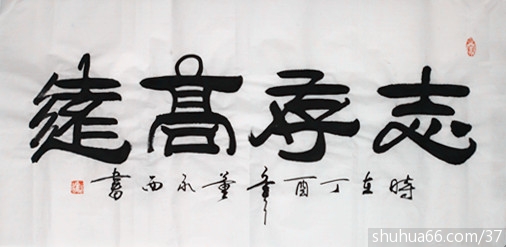 志存高遠
時在丁酉年董永西書
shuhua66.com/37